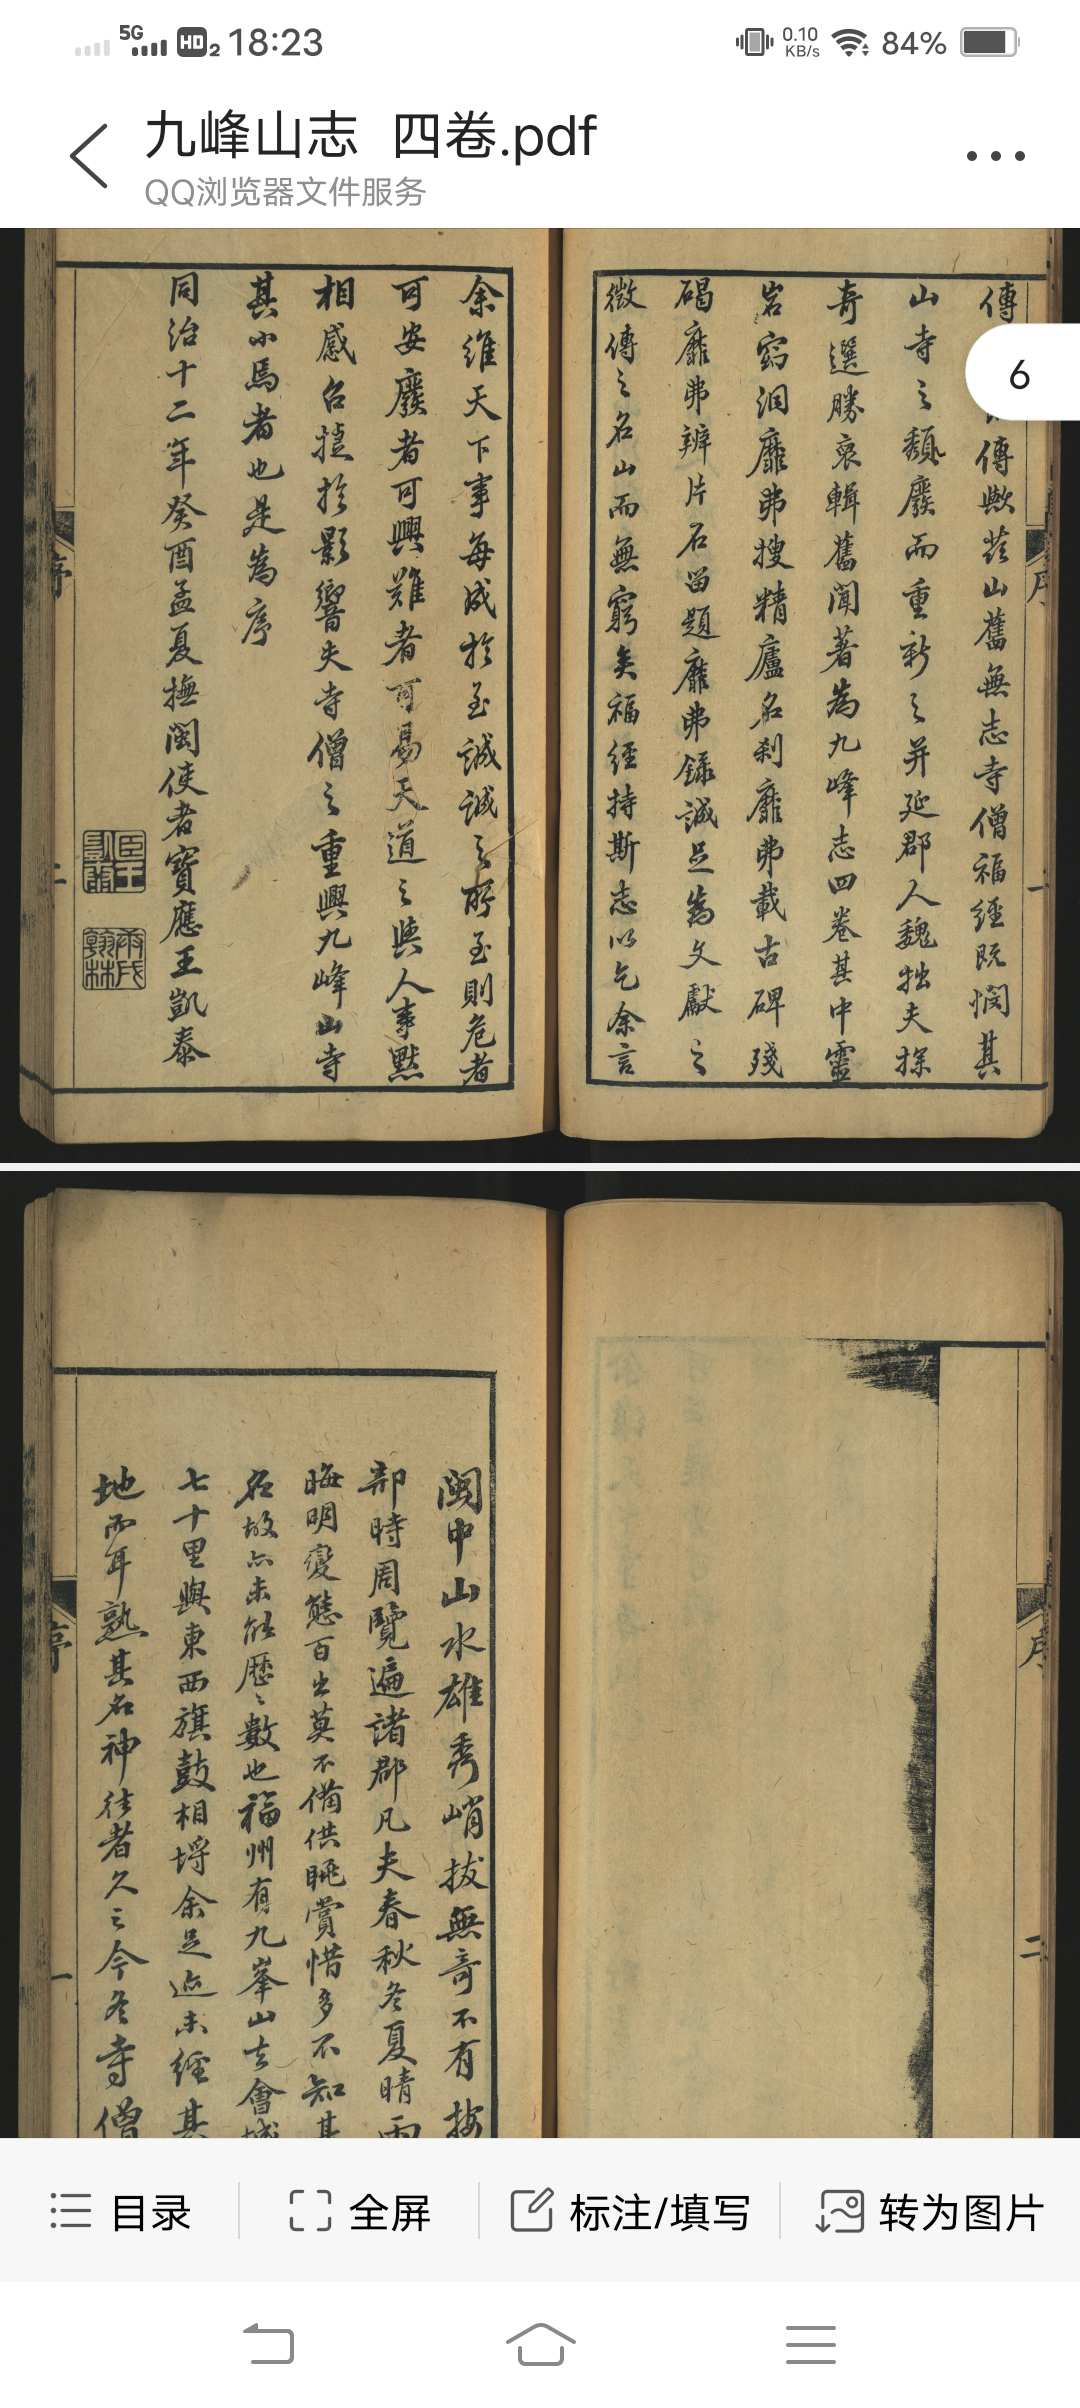 5G
HD 2
18:23
0.10
KB/s
84%
九峰山志 四卷.pdf
QQ浏览器文件服务
6
傳
傳歟茲山舊無志寺僧福經既憫其
山寺之頹廢而重新之并延郡人魏拙夫探
奇選勝裒輯舊聞著為九峰志四卷其中靈
岩窈洞靡弗搜精廬名刹靡弗載古碑殘
碣靡弗辨片石留題靡弗錄誠足為文獻之
徵傳之名山而無窮矣福經持斯志以乞余言
余維天下事每成於至誠誠之所至則危者
可安廢者可興難者可易天道之與人事默
相感召捷於影響夫寺僧之重興九峰山寺
其小焉者也是為序
同治十二年癸酉孟夏撫閩使者寶應王凱泰
序
一
序
二
閩中山水雄秀峭拔無奇不有按
部時周覽遍諸郡凡夫春秋冬夏晴雨
晦明變態百出莫不備供眺賞惜多不知其
名故亦未能歷歷數也福州有九峯山去會城
七十里與東西旗鼓相埒余足迹未經其
地而耳熟其名神往者久之今冬寺僧
序
一
目录
全屏
标注/填写
转为图片